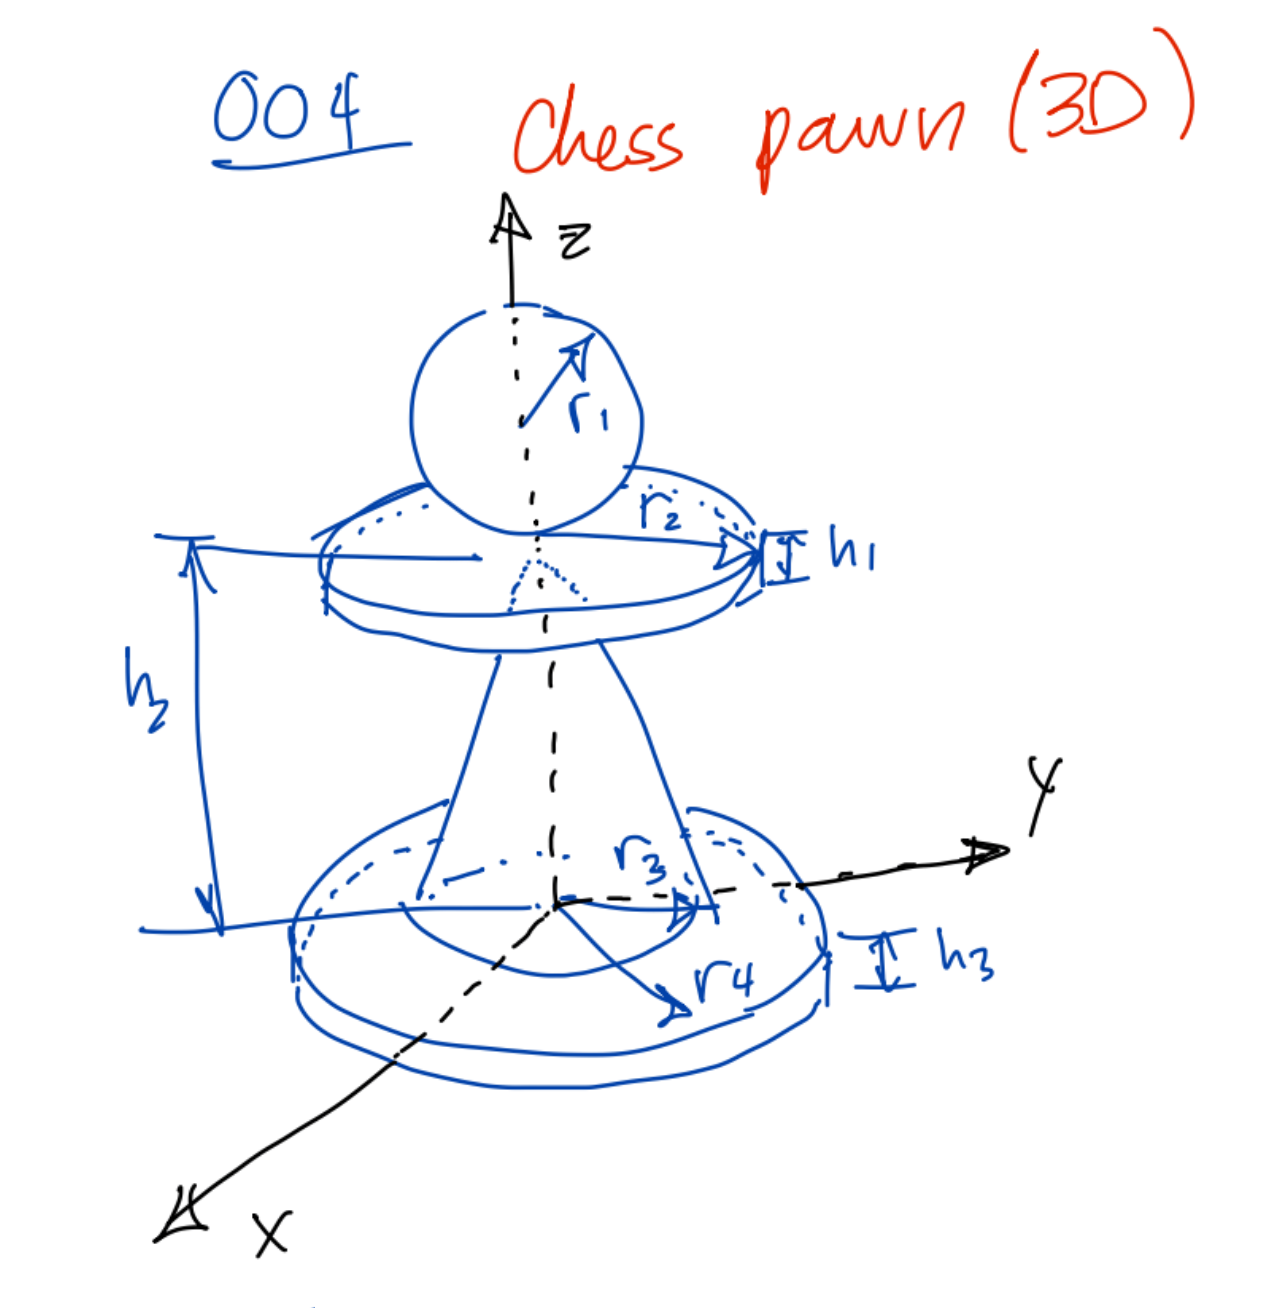 004 Chess pawn (3D)
z
r1
r2
h1
h2
y
r3
h3
r4
x